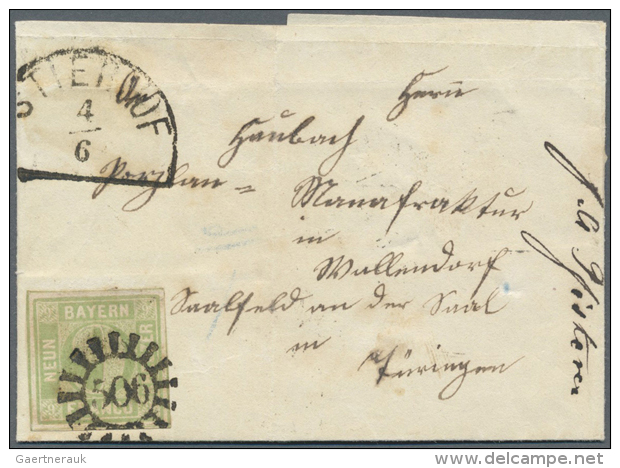 STIERHOF
4
6
Herrn
Haubach
Porzlan= Manafraktur
in
Wallendorf
Saalfeld an der Saal
in
Türingen
BAYERN
NEUN
506
© Gaertnerauk
www.delcampe.net